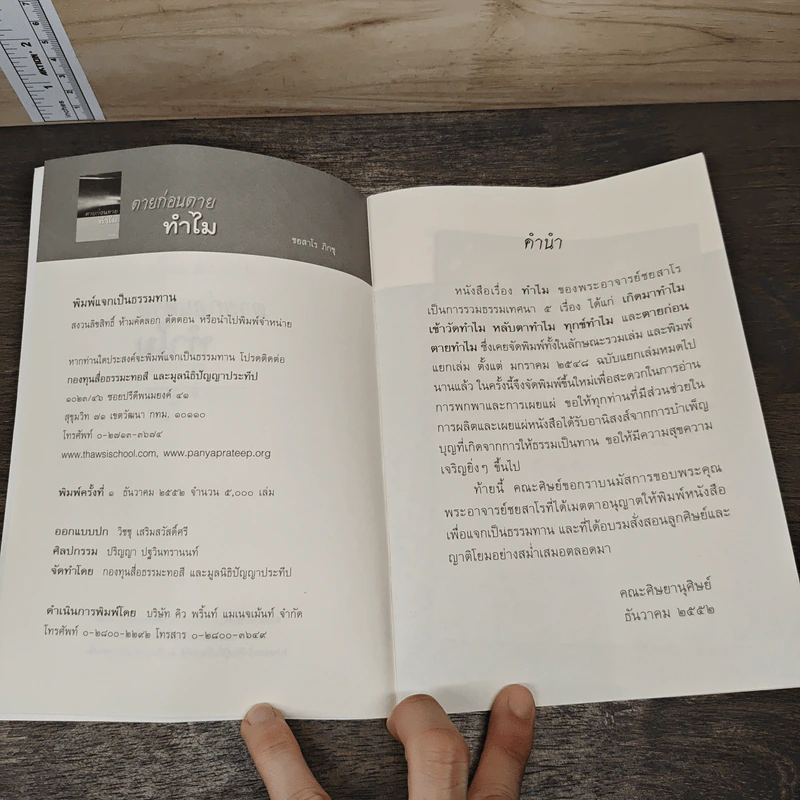 ตายก่อนตาย
ทำไม
ตายก่อนตาย
ทำไม
ชยสาโร ภิกขุ
พิมพ์แจกเป็นธรรมทาน
สงวนลิขสิทธิ์ ห้ามคัดลอก ตัดตอน หรือนำไปพิมพ์จำหน่าย
หากท่านใดประสงค์จะพิมพ์แจกเป็นธรรมทาน โปรดติดต่อ
กองทุนสื่อธรรมะทอสี และมูลนิธิปัญญาประทีป
๑๐๒๓/๔๖ ซอยปรีดีพนมยงค์ ๔๑
สุขุมวิท ๗๑ เขตวัฒนา กทม. ๑๐๑๑๐
โทรศัพท์ ๐-๒๗๑๓-๓๖๗๔
www.thawsischool.com, www.panyaprateep.org
พิมพ์ครั้งที่ ๑ ธันวาคม ๒๕๕๒ จำนวน ๕,๐๐๐ เล่ม
ออกแบบปก วิชชุ เสริมสวัสดิ์ศรี
ศิลปกรรม ปริญญา ปฐวินทรานนท์
จัดทำโดย กองทุนสื่อธรรมะทอสี และมูลนิธิปัญญาประทีป
ดำเนินการพิมพ์โดย บริษัท คิว พริ้นท์ แมเนจเม้นท์ จำกัด
โทรศัพท์ ๐-๒๘๐๐-๒๒๙๒ โทรสาร ๐-๒๘๐๐-๓๖๔๙
คำนำ
หนังสือเรื่อง ทำไม ของพระอาจารย์ชยสาโร
เป็นการรวมธรรมเทศนา ๕ เรื่อง ได้แก่ เกิดมาทำไม
เข้าวัดทำไม หลับตาทำไม ทุกข์ทำไม และตายก่อน
ตายทำไม ซึ่งเคยจัดพิมพ์ทั้งในลักษณะรวมเล่ม และพิมพ์
แยกเล่ม ตั้งแต่ มกราคม ๒๕๔๘ ฉบับแยกเล่มหมดไป
นานแล้ว ในครั้งนี้จึงจัดพิมพ์ขึ้นใหม่เพื่อสะดวกในการอ่าน
การพกพาและการเผยแผ่ ขอให้ทุกท่านที่มีส่วนช่วยใน
การผลิตและเผยแผ่หนังสือได้รับอานิสงส์จากการบำเพ็ญ
บุญที่เกิดจากการให้ธรรมเป็นทาน ขอให้มีความสุขความ
เจริญยิ่งๆ ขึ้นไป
ท้ายนี้ คณะศิษย์ขอกราบนมัสการขอบพระคุณ
พระอาจารย์ชยสาโรที่ได้เมตตาอนุญาตให้พิมพ์หนังสือ
เพื่อแจกเป็นธรรมทาน และที่ได้อบรมสั่งสอนลูกศิษย์และ
ญาติโยมอย่างสม่ำเสมอตลอดมา
คณะศิษยานุศิษย์
ธันวาคม ๒๕๕๒